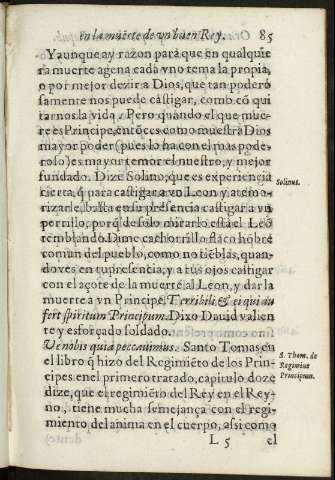 en la muerte de vn buen Rey. 85
Y aunque ay razon para que en qualquie
ra muerte agena cada vno tema la propia,
o por mejor dezir a Dios, que tan podero
samente nos puede castigar, como cõ qui
tarnos la vida. Pero quando el que mue-
re es Principe, entõces como muestra Dios
mayor poder (pues lo ha con el mas pode-
rolo) es mayor temor el nuestro, y mejor
fundado. Dize Solino, que es experiencia
cierta, q̃ para castigar a vn Leon y atemo-
rizarle, basta en su presencia castigar a vn
perrillo, porq̃ de solo mirarlo está el Leõ
temblando. Dime cachorrillo flaco hõbre
comun del pueblo, como no tiẽblas, quan-
do ves en tu presencia, y a tus ojos castigar
con el açote de la muerte al Leon, y dar la
muerte a vn Principe. Terribili & ei qui au
fert spiritum Principum. Dixo Dauid valien
te y esforçado soldado.
Væ nobis quia peccauimus. Santo Tomas en
el libro q̃ hizo del Regimiẽto de los Prin-
cipes en el primero tratado, capitulo doze
dize, que el regimiẽto del Rey en el Rey-
no, tiene mucha semejança con el regi-
miento del anima en el cuerpo, assi como
L 5 el
Solinus.
S. Thom. de
Regimine
Principum.